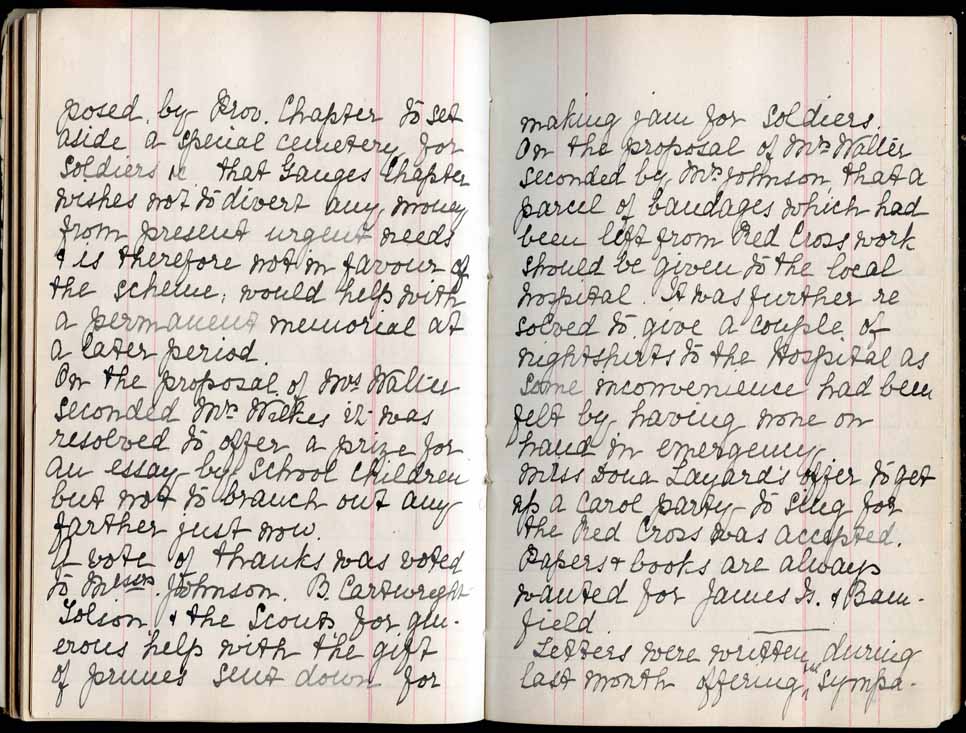 posed by Prov. Chapter to set
aside a special cemetery for
soldiers that Ganges Chapter
wishes not to divert any money
from present urgent needs
& is therefore not in favour of
the scheme, would help with
a permanent memorial at
a later period.
On the proposal of Mrs Walter
seconded Mrs Wilkes it was
resolved to offer a prize for
an essay by school children
but not to branch out any
farther just now.
A vote of thanks was voted
to Messrs. Johnson. B. Cartwright
Tolson & the Scouts for gen-
erous help with the gift
of prunes sent down for
making jam for soldiers.
On the proposal of Mrs Walter
seconded by Mrs Johnson, that a
parcel of bandages which had
been left from Red Cross work
should be given to the local
hospital. It was further re
solved to give a couple of
nightshirts to the Hospital as
some inconvenience had been
felt by having none on
hand in emergency.
Miss Dona Layard's offer to get
up a carol party to sing for
the Red Cross was accepted.
Papers & books are always
wanted for James Is. & Bam-
field.
Letters were written during
last month offering "sympa-